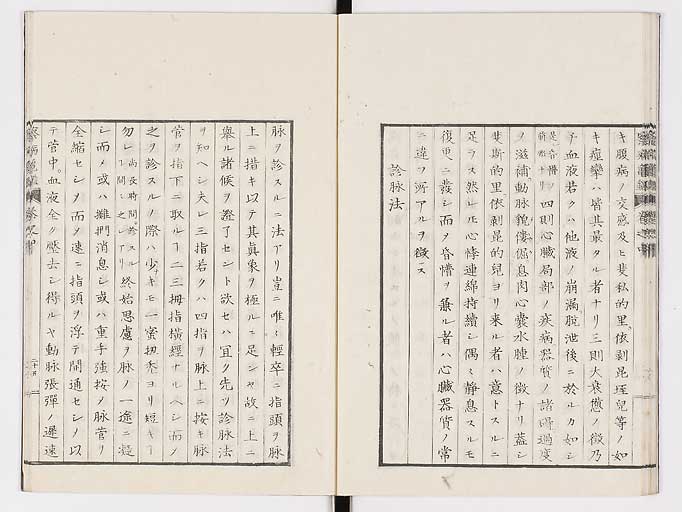 キ腹病ノ交感及ヒ斐私的里、依剥昆埊兒等ノ如
キ痙攣ハ皆其最タル者ナリ三則大衰憊ノ徴乃
チ血液若クハ他液ノ崩漏脱泄後ニ於ルカ如シ
四則心臓局部ノ疾病器質ノ諸過度
ヲ滋補動脉貌僂傴息肉心囊水腫ノ徴ナリ蓋シ
斐斯的里依剥昆的兒ヨリ来ル者ハ意トスルニ
足ラス然レ𪜈心悸連綿持續シ偶〻静息スルモ
復更ニ發シ而メ昏憒ヲ兼ル者ハ心臓器質ノ常
ニ違フ所アルヲ徴ス
診脉法
脉ヲ診スルニ法アリ豈ニ唯〻輕卒ニ指頭ヲ脉
上ニ措キ以テ其眞象ヲ極ルニ足ンヤ故ニ上ニ
舉ル諸候ヲ證了セント欲セハ宜ク先ツ診脉法
ヲ知ヘシ夫レ三指若クハ四指ヲ脉上ニ按キ脉
管ヲ指下ニ取ルヿ二三拇指横經ナルヘシ而メ
之ヲ診スルノ際ハ少キモ一蜜扭秃ヨリ短キヿ
勿レ尚長時間ヲ診スルヿ間〻之レアリ終始思慮ヲ脉ノ一途ニ凝
シ而メ或ハ雑門消息シ或ハ重手強按メ脉管ヲ
全縮セシメ而メ速ニ指頭ヲ浮テ開通セシメ以
テ管中、血液全ク壓去シ得ルヤ動脉張彈ノ遲速
二十四